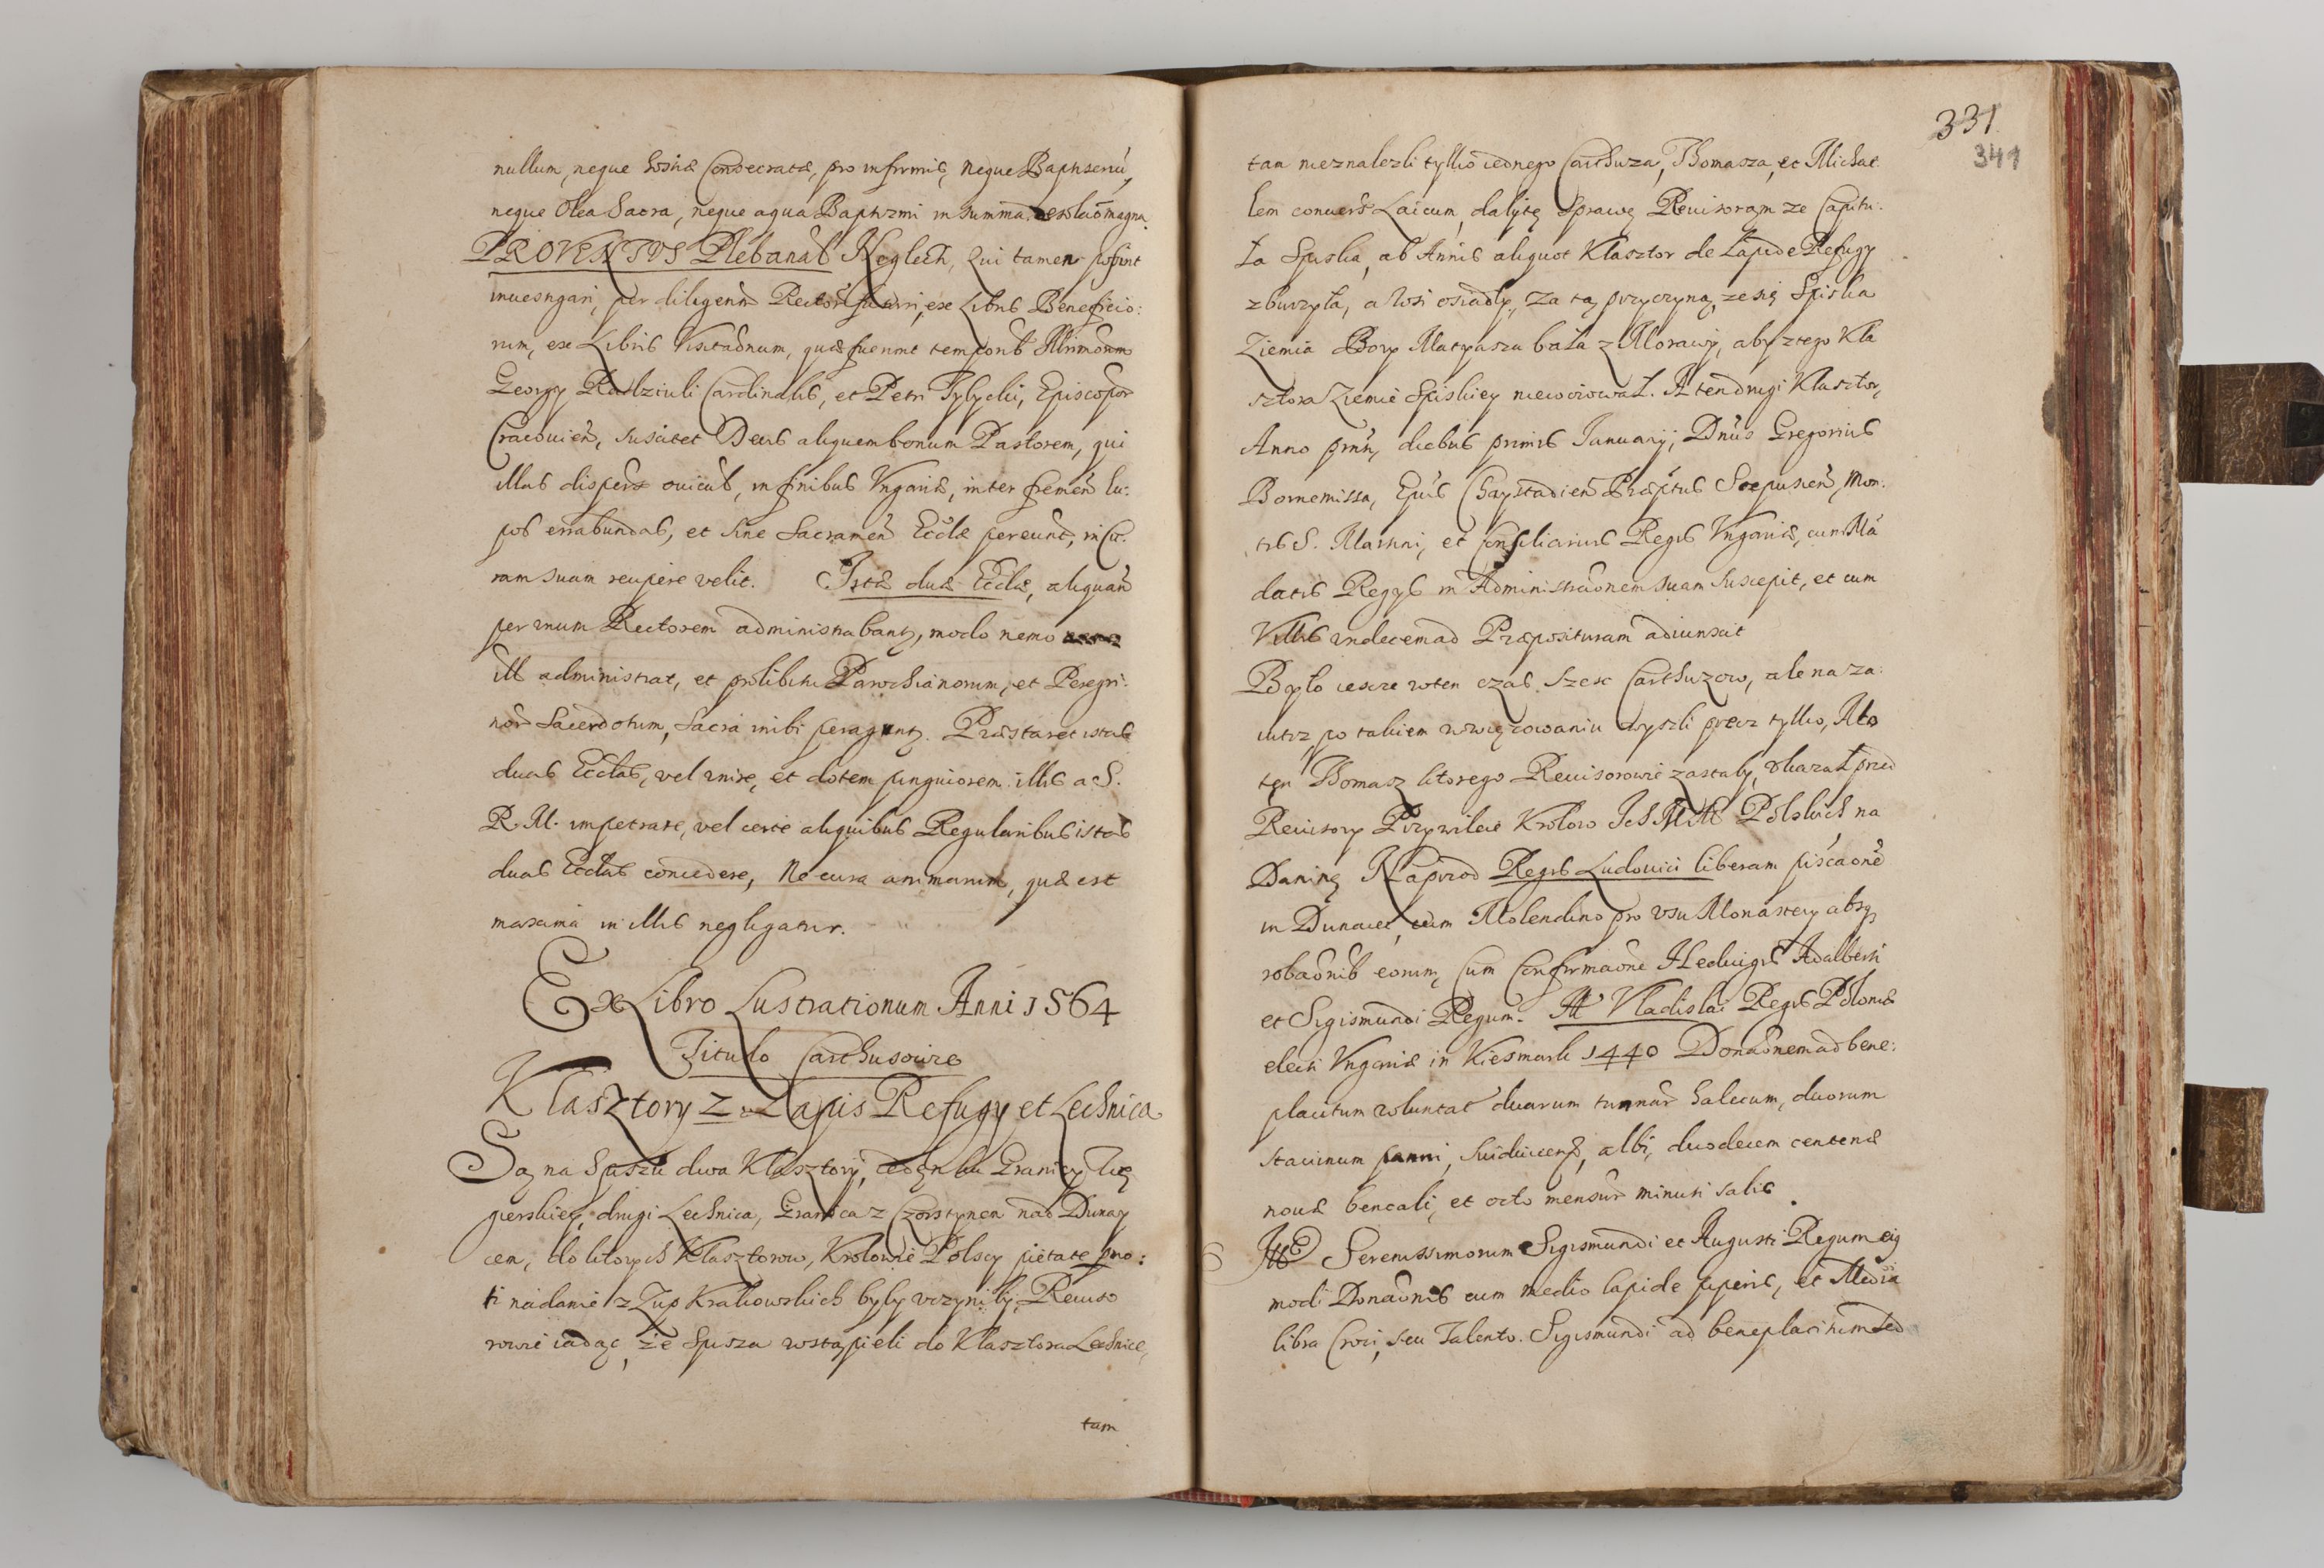 nullum, neque hostiæ Consecratæ, pro infirmis, neque Baptisteriū,
neque Olea Sacra, neque aqua Baptizmi in summa desolaõ magna
PROVENTVS Plebanat9 Hoglech, qui tamen possint
inuestigari, per diligentē Rectorē futuri, ex Libris Beneficio:
rum, ex Libris Visitaõnum, quæ fuerunt temporib9
Georgij Radziuili Cardinalis, et Petri Tylycki, Episcopor
Cracouien, suscitet Deus aliquem bonum Pastorem, qui
illas dispersas ouiculas, in finibus Vngariæ, inter fremen lu:
pos errabundas, et sine Sacramen Ecclæ pereunt, in Cu:
ram suam recipere velit. Istæ duæ Ecclæ, aliquan
per vnum Rectorem administrabant, modo nemo
ill administrat, et prolibitu Parochianorum, et Peregri:
nor Sacerdotum, Sacra inibi peragunt. Præstaret istas
duas Ecclas, vel vnire, et dotem pinguiorem illis a S.
R. M. impetrare, vel certe aliquibus Regularibus istas
duas Ecclas concedere, Ne cura animarum, quæ est
maxima in illis negligatur.
Ex Libro Lustrationum Anni 1564
Titulo Carthusowie
Klasztory Z Lapis Refugy et Lechnica
Są na Spiszu dwa Klasztory, ieden ku Granicy Wę
gierskiey, drugi Lechnica, Granica z Czorstynem nad Dunay
cem, do ktorych Klasztorow, Krolowie Polscy pietate mo:
ti nadanie z Zup Krakowskich byly vczynili, Reuiso
rowie iadąc, ze Spisza wstąpieli do Klasztora Lechnice,
tam
331
341
tam nieznalezli tylko iednego Carthuza, Thomasza, et Michae
lem conuers Laicum, dali tę sprawę Reuisorom ze Capitu:
ła Spiska, ab Annis aliquot Klasztor de Lapide Refugy
zburzyła, a Wsi osiadły, Za tą przyczyną, ze się Spiska
Ziemia Boy Matyasza bała z Morawy, aby z tego Kla
sztora Ziemie Spiskiey niewoiował. A ten drugi Klasztor,
Anno pnti, diebus primis Januarij, Dnus Gregorius
Bornemissa, Epus Chaystadien Præptus Scepusien, Mon:
tis S. Martini, et Consiliarius Regis Vngariæ, cum Mã
datis Regys in Administraõnem suam suscepit, et cum
Villis vndecem ad Præposituram adiunxit
Było iescze wten czas Szesc Carthuzow, ale naza:
iutrz, po takiem wwięzowaniu wyszli precz tylko,
ten Thomasz ktorego Reuisorowie zastaly, vkazał przed
Reuisory Przywileie Krolow Ich MM Polskich na
Daninę Naprzod Regis Ludouici liberam piscaonē
in Dunaiec, cum Molendino pro vsu Monastery absq
robaõnib eorum, Cum Confirmaõne Hedwigis Adalberti
et Sigismundi Regum. Itē Vladislai Regis Poloniæ
electi Vngariæ in Kiesmark 1440 Donaõnem ad bene:
placitum voluntat duarum tunnar halecum, duorum
staminum panni, suidnicens, albi, duodecem centena
nouæ bencali, et octo mensur minuti salis.
Itē Serenissimorum Sigismundi et Augusti Regum eiq
modi Donaõnis cum medio lapide piperis, et Media
libra Croci, seu Talento. Sigismundi ad beneplacitum Sed